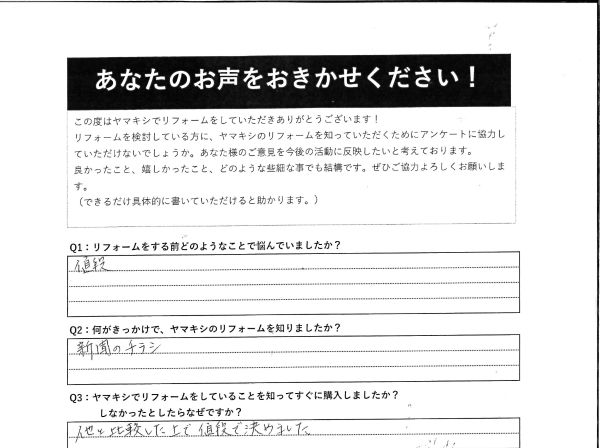 あなたのお声をおきかせください！
この度はヤマキシでリフォームをしていただきありがとうございます！
リフォームを検討している方に、ヤマキシのリフォームを知っていただくためにアンケートに協力し
ていただけないでしょうか。あなた様のご意見を今後の活動に反映したいと考えております。
良かったこと、嬉しかったこと、どのような些細な事でも結構です。ぜひご協力よろしくお願いしま
す。
（できるだけ具体的に書いていただけると助かります。）
Q1：リフォームをする前どのようなことで悩んでいましたか？
値段
Q2：何がきっかけで、ヤマキシのリフォームを知りましたか？
新聞のチラシ
Q3：ヤマキシでリフォームをしていることを知ってすぐに購入しましたか？
しなかったとしたらなぜですか？
他と比較した上で値段で決めました